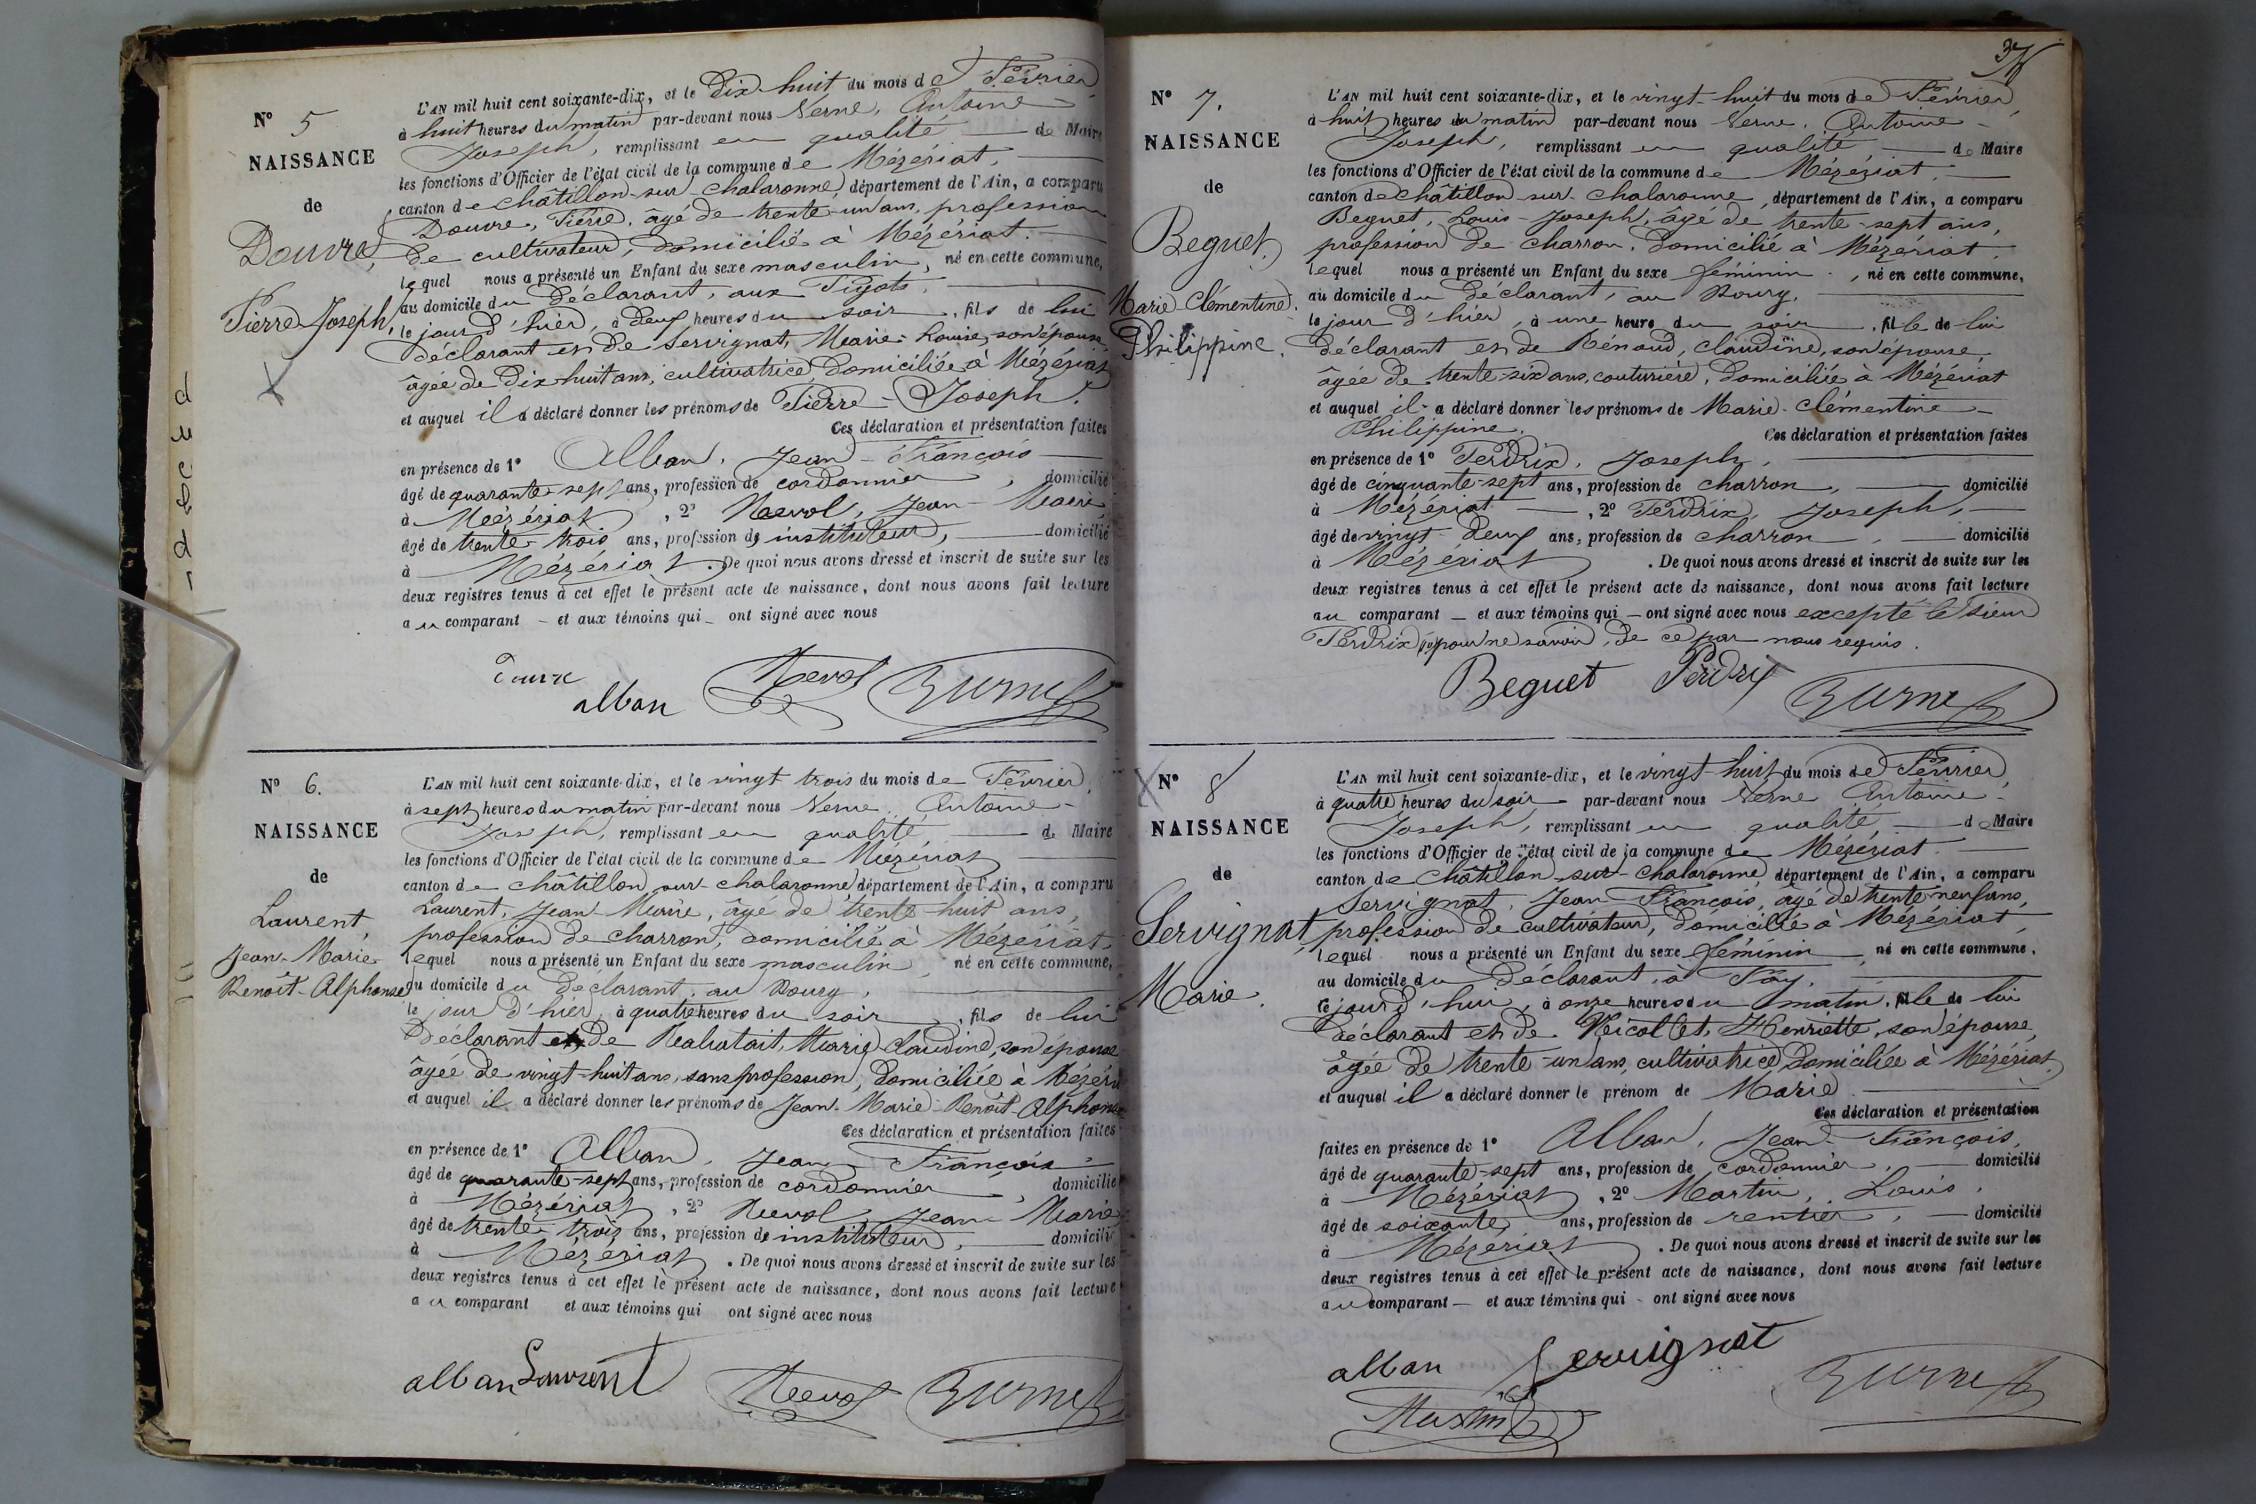 N° 5
NAISSANCE
de
Douvre,
Pierre Joseph,
L'AN mil huit cent soixante-dix, et le Dix-huit du mois de Février,
à huit heures du matin par-devant nous Verne, Antoine-
Joseph, remplissant en qualité de Maire
les fonctions d'Officier de l'état civil de la commune de Mézériat,
canton de Châtillon-sur-Chalaronne, département de l'Ain, a comparu
Douvre, Pierre, âgé de trente-un ans, profession
de cultivateur, domicilié à Mézériat.
lequel nous a présenté un Enfant du sexe masculin, né en cette commune,
au domicile du déclarant, aux
le jour d'hier, à deux heures du soir, fils de lui
déclarant et de Servignat, Marie-Louise, son épouse,
âgée de dix-huit ans, cultivatrice, domiciliée à Mézériat
et auquel il a déclaré donner les prénoms de Pierre-Joseph.
Ces déclaration et présentation faites
en présence de 1° Alban, Jean-François
âgé de quarante-sept ans, profession de cordonnier, domicilié
à Mézériat, 2° Nevol, Jean-Marie
âgé de trente-trois ans, profession de instituteur, domicilié
à Mézériat. De quoi nous avons dressé et inscrit de suite sur les
deux registres tenus à cet effet le présent acte de naissance, dont nous avons fait lecture
au comparant et aux témoins qui ont signé avec nous
Douvre
alban Nevol Verne
N° 6.
NAISSANCE
de
Laurent,
Jean-Marie-
Benoît-Alphonse
L'AN mil huit cent soixante-dix, et le vingt trois du mois de Février,
à sept heures du matin par-devant nous Verne, Antoine-
Joseph, remplissant en qualité de Maire
les fonctions d'Officier de l'état civil de la commune de Mézériat
canton de Châtillon-sur-Chalaronne département de l'Ain, a comparu
Laurent, Jean-Marie, âgé de trente-huit ans,
profession de charron, domicilié à Mézériat,
lequel nous a présenté un Enfant du sexe masculin, né en cette commune,
au domicile du déclarant, au Bourg,
le jour d'hier, à quatre heures du soir, fils de lui
déclarant et de Marie Claudine, son épouse
âgée de vingt-huit ans, sans profession, domiciliée à Mézériat
et auquel il a déclaré donner les prénoms de Jean-Marie-Benoît-Alphonse
Ces déclaration et présentation faites
en présence de 1° Alban, Jean François
âgé de quarante-sept ans, profession de cordonnier, domicilié
à Mézériat, 2° Nevol, Jean-Marie
âgé de trente-trois ans, profession de instituteur, domicilié
à Mézériat. De quoi nous avons dressé et inscrit de suite sur les
deux registres tenus à cet effet le présent acte de naissance, dont nous avons fait lecture
au comparant et aux témoins qui ont signé avec nous
alban Laurent Nevol Verne
N° 7.
NAISSANCE
de
Beguet,
Marie Clémentine
Philippine.
L'AN mil huit cent soixante-dix, et le vingt-huit du mois de Février
à huit heures du matin par-devant nous Verne, Antoine-
Joseph, remplissant en qualité de Maire
les fonctions d'Officier de l'état civil de la commune de Mézériat.
canton de Châtillon-sur-Chalaronne, département de l'Ain, a comparu
Beguet, Louis-Joseph, âgé de trente-sept ans,
profession de charron, domicilié à Mézériat,
lequel nous a présenté un Enfant du sexe féminin, né en cette commune,
au domicile du déclarant, au Bourg,
le jour d'hier, à une heure du soir, fille de lui
déclarant et de Rénaud, Claudine, son épouse,
âgée de trente-six ans, couturière, domiciliée à Mézériat
et auquel il a déclaré donner les prénoms de Marie-Clémentine-
Philippine. Ces déclaration et présentation faites
en présence de 1° Perdrix, Joseph,
âgé de cinquante-sept ans, profession de charron, domicilié
à Mézériat, 2° Perdrix, Joseph,
âgé de vingt-deux ans, profession de charron, domicilié
à Mézériat. De quoi nous avons dressé et inscrit de suite sur les
deux registres tenus à cet effet le présent acte de naissance, dont nous avons fait lecture
au comparant et aux témoins qui ont signé avec nous excepté le sieur
Perdrix pour ne savoir, de ce par nous requis.
Beguet Perdrix Verne
N° 8
NAISSANCE
de
Servignat,
Marie.
L'AN mil huit cent soixante-dix, et le vingt-huit du mois de Février
à quatre heures du soir par-devant nous Verne Antoine-
Joseph, remplissant en qualité, de Maire
les fonctions d'Officier de l'état civil de la commune de Mézériat
canton de Châtillon-sur-Chalaronne département de l'Ain, a comparu
Servignat, Jean-François, âgé de trente-neuf ans,
profession de cultivateur, domicilié à Mézériat,
lequel nous a présenté un Enfant du sexe féminin, né en cette commune,
au domicile du déclarant, à
ce jour d'hui, à onze heures du matin, fille de lui
déclarant et de Nicollet, Henriette, son épouse,
âgée de trente-un ans, cultivatrice, domiciliée à Mézériat,
et auquel il a déclaré donner le prénom de Marie
Ces déclaration et présentation
faites en présence de 1° Alban, Jean-François,
âgé de quarante-sept ans, profession de cordonnier, domicilié
à Mézériat, 2° Martin, Louis,
âgé de soixante ans, profession de rentier, domicilié
à Mézériat. De quoi nous avons dressé et inscrit de suite sur les
deux registres tenus à cet effet le présent acte de naissance, dont nous avons fait lecture
au comparant et aux témoins qui ont signé avec nous
alban Servignat
Martin Verne